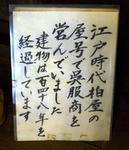 江戸時代柏屋の
屋号で呉服商を
営んでいました
建物は百四十八年を
経過しています